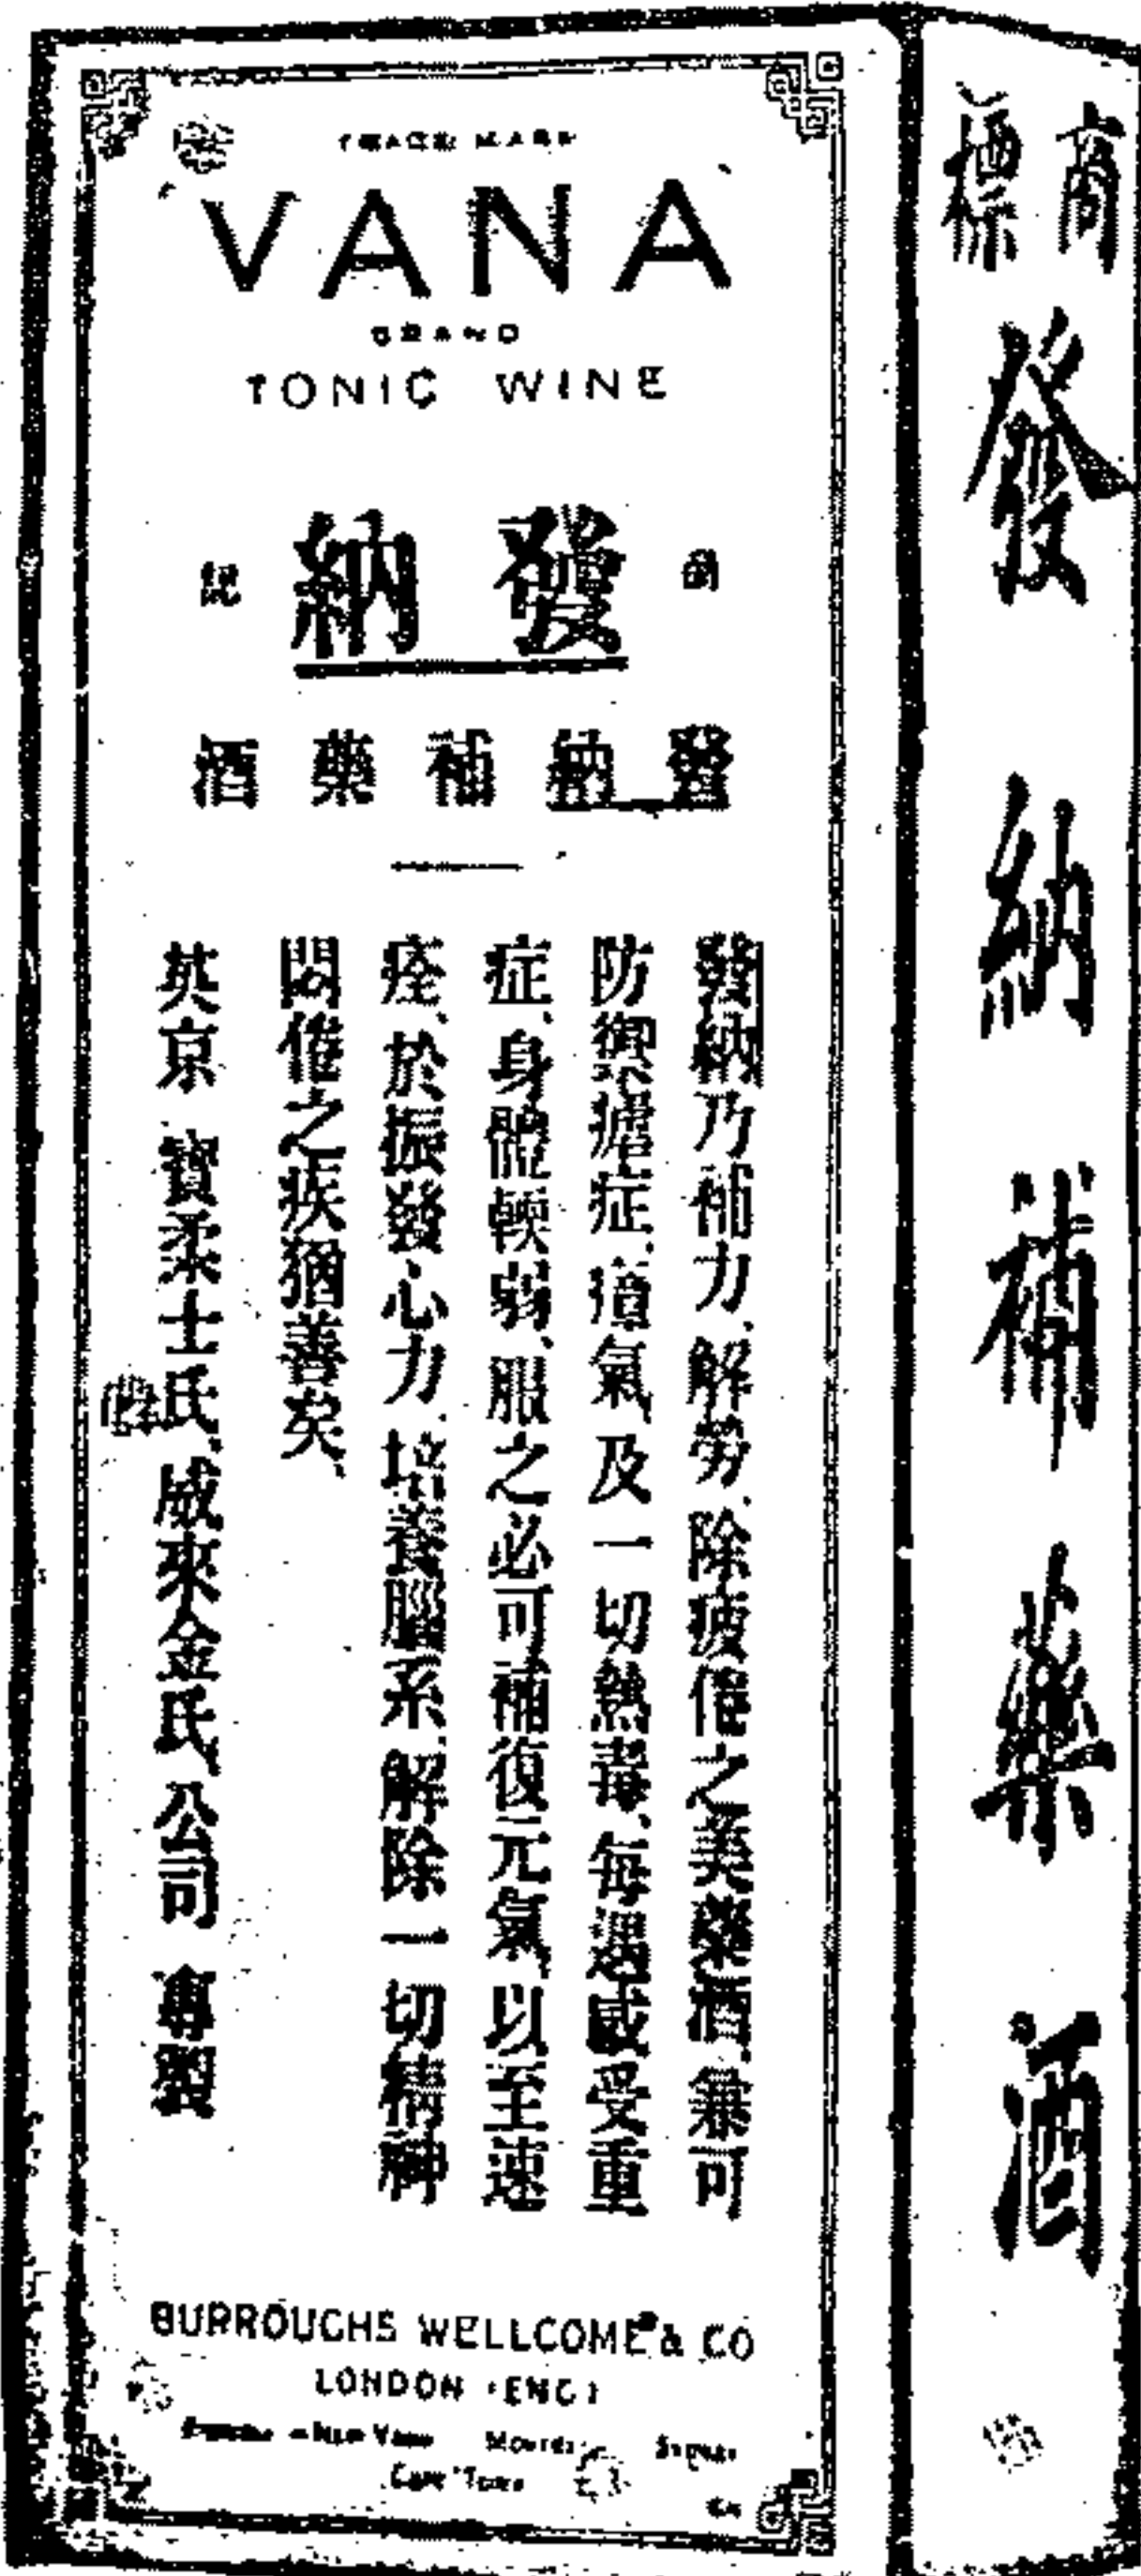 TRADE MARK
VANA
BRAND
TONIC WINE
納發
酒藥補納發
發納乃補力、解勞、除疲倦之美藥酒、兼可
防禦瘧症、瘴氣、及一切熱毒、每遇感受重
症、身體軟弱、服之必可補復元氣、以至速
痊、於振發心力、培養腦系、解除一切精神
悶倦之疾猶善矣、
英京 寶柔士氏、威來金氏、公司 專製
BURROUGHS WELLCOME & CO
LONDON (ENG)
New York Montreal Sydney
Cape Town
商標
發納補藥酒